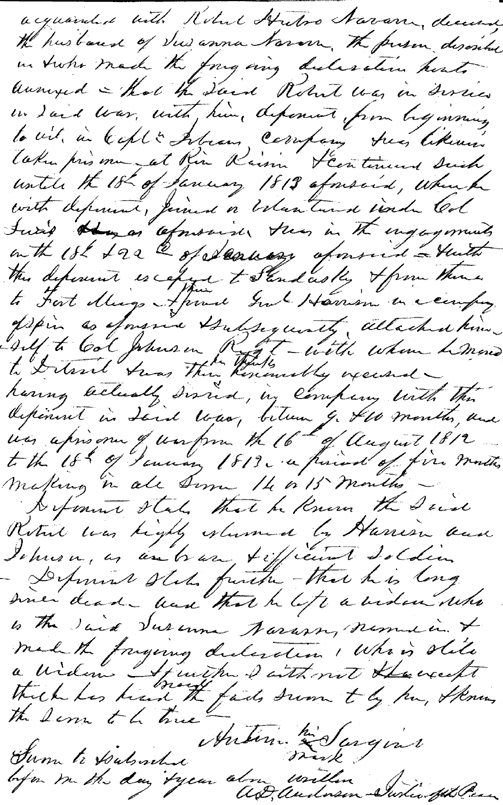 acquainted with Robert Navarre, deceased
the husband of Suzanna Navarre, the person described
in & who made the foregoing declaration hereto
annexed – that the said Robert was in service
in said war, with him, deponent, from beginning
to wit, in Capt company & was likewise
taken prisoner – at River Raisin & continued such
until the 18th of January 1813 aforesaid, when he
with deponent, joined or volunteered under Col
as aforesaid & was in the engagements
on the 18th & 22d of January aforesaid – & with
this deponent escaped to Sandusky & from thence
to Fort Meigs – & Genl Harrison in a company
of spies as aforesaid & subsequently, attached him-
self to Col Johnson Regt – with whom he moved
to Detroit & was then honorably excused –
having actually served, in company with this
deponent in said war, between 9 & 10 months, and
was a prisoner of war from the 16th of August 1812
to the 18th of January 1813 – a period of five months
making in all some 14 or 15 months –
Deponent states that he knows the said
Robert was highly esteemed by Harrison and
Johnson, as a brave & efficient soldier
Deponent states further – that he is long
since dead – and that he left a widow, who
is the said Suzanna Navarre, named in &
made the foregoing declaration, who is still
a widow – & further saith not except
that he has heard read the facts sworn to by her, & knows
the same to be true –
his
mark
Sworn to & subscribed
before me the day & year above written
Anderson – Justice of the Peace